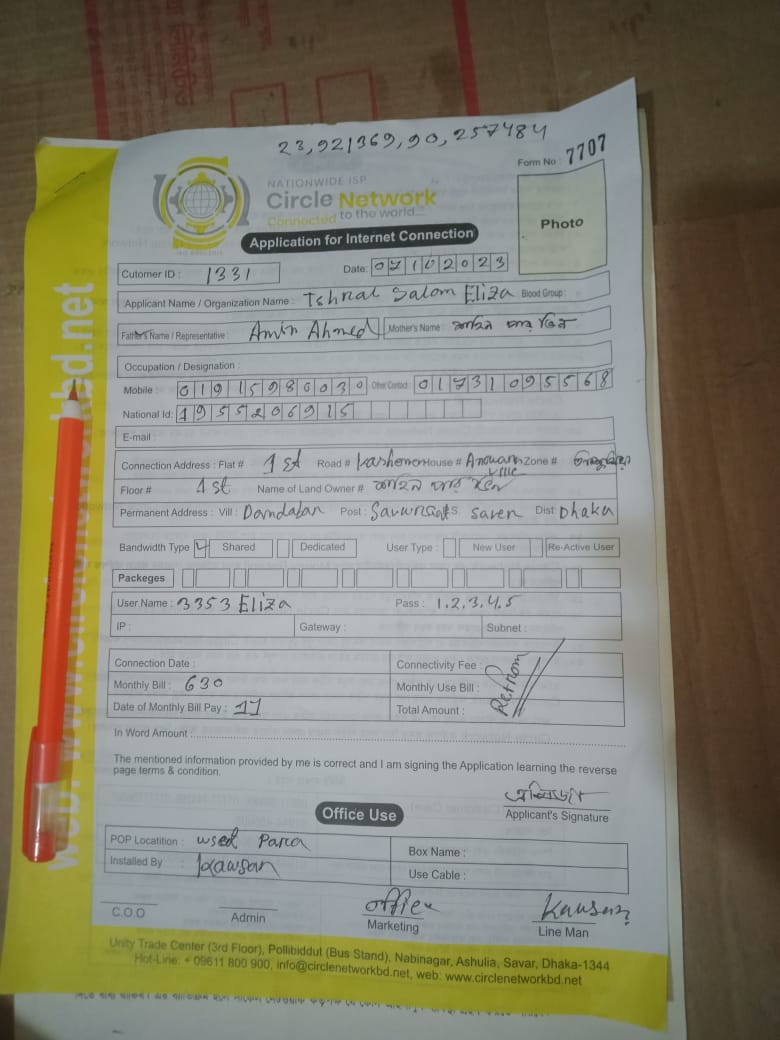 23,921369,90,257484
Form No : 7707
NATIONWIDE ISP
Circle Network
Connected to the world...
Photo
Application for Internet Connection
Cutomer ID : 1331
Date: 07102023
Applicant Name / Organization Name : Ishrat Salom Eliza Blood Group :
Father's Name / Representative : Amin Ahmed Mother's Name :
Occupation / Designation :
Mobile : 01915980030 Other Contact 01731095568
National Id: 1955206915
E-mail :
Connection Address : Flat # 1st Road # House # Zone #
Floor # 1st Name of Land Owner #
Permanent Address : Vill : Dandaban Post : P.S. saver Dist: Dhaka
Bandwidth Type Shared Dedicated User Type : New User Re-Active User
Packeges
User Name : 3353 Eliza Pass : 1.2.3.4.5
IP : Gateway : Subnet :
Connection Date : Connectivity Fee :
Monthly Bill : 630 Monthly Use Bill :
Date of Monthly Bill Pay : 11 Total Amount :
In Word Amount :
The mentioned information provided by me is correct and I am signing the Application learning the reverse
page terms & condition.
Applicant's Signature
Office Use
POP Locatition : Box Name :
Installed By : Kawsar Use Cable :
office Kausar
C.O.O Admin Marketing Line Man
Unity Trade Center (3rd Floor), Pollibiddut (Bus Stand), Nabinagar, Ashulia, Savar, Dhaka-1344
Hot-Line: + 09611 800 900, info@circlenetworkbd.net, web: www.circlenetworkbd.net